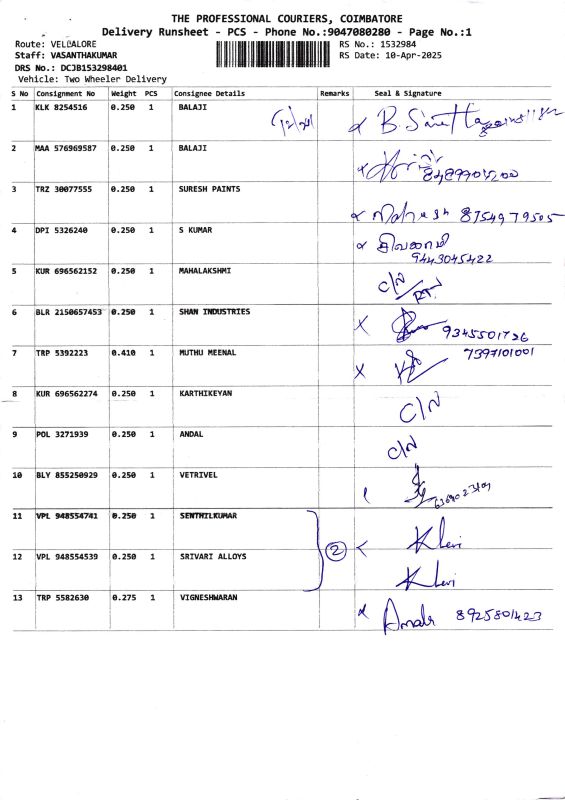 THE PROFESSIONAL COURIERS, COIMBATORE
Delivery Runsheet - PCS - Phone No.:9047080280 - Page No.:1
Route: VELLALORE RS No.: 1532984
Staff: VASANTHAKUMAR RS Date: 10-Apr-2025
DRS No.: DCJB153298401
Vehicle: Two Wheeler Delivery
S No Consignment No Weight PCS Consignee Details Remarks Seal & Signature
1 KLK 8254516 0.250 1 BALAJI
2 MAA 576969587 0.250 1 BALAJI
3 TRZ 30077555 0.250 1 SURESH PAINTS 8754979505
4 DPI 5326240 0.250 1 S KUMAR
9443045422
5 KUR 696562152 0.250 1 MAHALAKSHMI C/N
6 BLR 2150657453 0.250 1 SHAN INDUSTRIES X 9345501726
7 TRP 5392223 0.410 1 MUTHU MEENAL X 7397101001
8 KUR 696562274 0.250 1 KARTHIKEYAN C/N
9 POL 3271939 0.250 1 ANDAL C/N
10 BLY 855250929 0.250 1 VETRIVEL
11 VPL 948554741 0.250 1 SENTHILKUMAR
2
12 VPL 948554539 0.250 1 SRIVARI ALLOYS
13 TRP 5582630 0.275 1 VIGNESHWARAN 8925801423